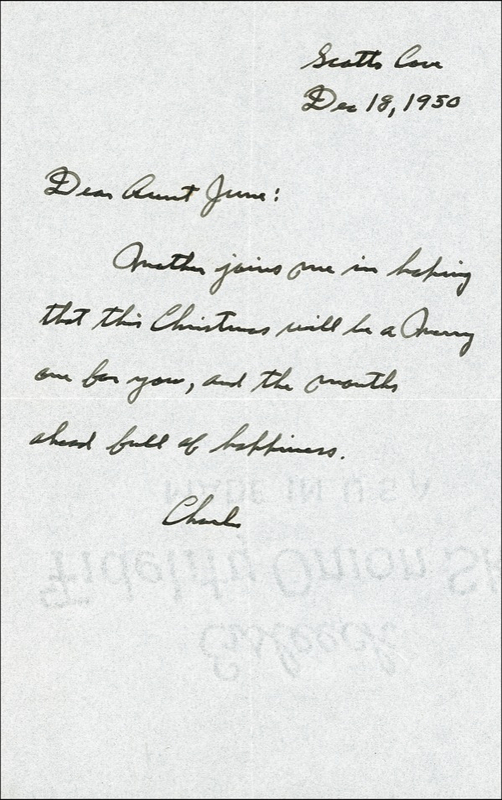 Scotts Cove
Dec 18, 1950
Dear Aunt June:
Mother joins me in hoping
that this Christmas will be a Merry
one for you, and the months
ahead full of happiness.
Charles
MADE IN U.S.A.
Fidelity Onion Sk
Esleeck